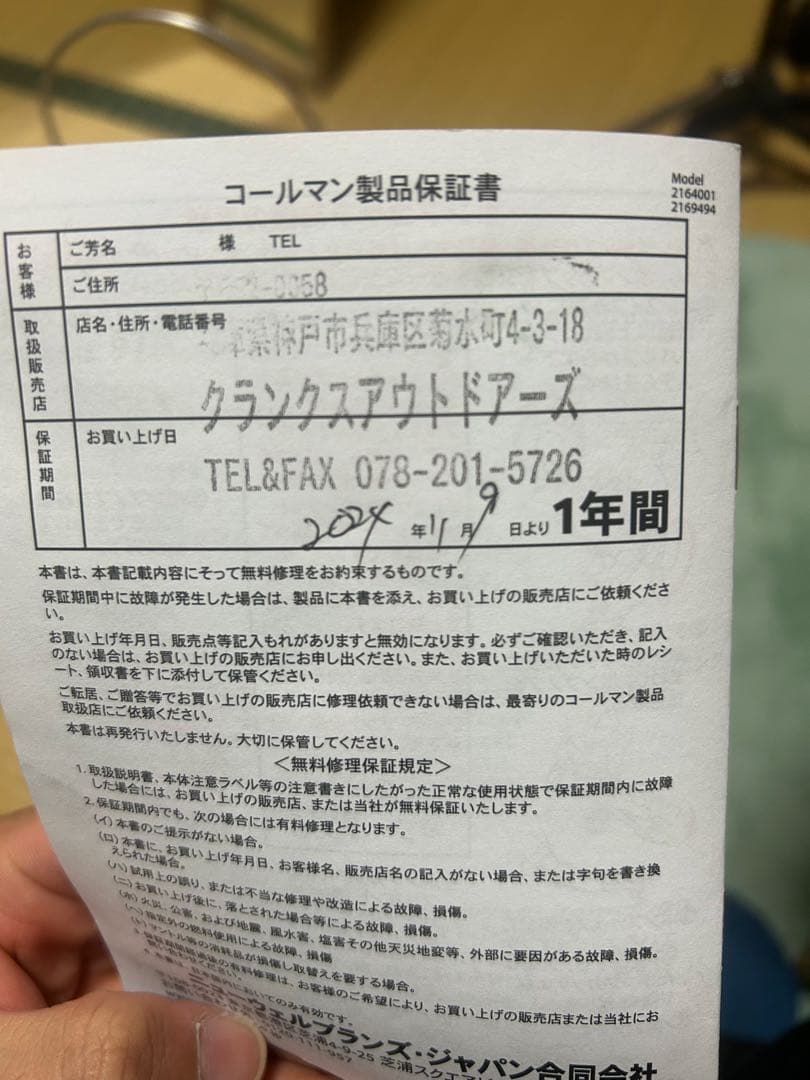 コールマン製品保証書
Model
2164001
2169494
お客様
ご芳名 様 TEL
ご住所
-0058
取扱販売店
店名・住所・電話番号
県神戸市兵庫区菊水町4-3-18
クランクスアウトドアーズ
保証期間
お買い上げ日
TEL&FAX 078-201-5726
2024 年 11 月 9 日より 1年間
本書は、本書記載内容にそって無料修理をお約束するものです。
保証期間中に故障が発生した場合は、製品に本書を添え、お買い上げの販売店にご依頼くださ
い。
お買い上げ年月日、販売点等記入もれがありますと無効になります。必ずご確認いただき、記入
のない場合は、お買い上げの販売店にお申し出ください。また、お買い上げいただいた時のレシ
ート、領収書を下に添付して保管ください。
ご転居、ご贈答等でお買い上げの販売店に修理依頼できない場合は、最寄りのコールマン製品
取扱店にご依頼ください。
本書は再発行いたしません。大切に保管してください。
＜無料修理保証規定＞
1. 取扱説明書、本体注意ラベル等の注意書きにしたがった正常な使用状態で保証期間内に故障
した場合には、お買い上げの販売店、または当社が無料保証いたします。
2. 保証期間内でも、次の場合には有料修理となります。
(イ)本書のご提示がない場合。
(ロ)本書に、お買い上げ年月日、お客様名、販売店名の記入がない場合、または字句を書き換
えられた場合。
(ハ)試用上の誤り、または不当な修理や改造による故障、損傷。
(ニ)お買い上げ後に、落とされた場合等による故障、損傷。
(ホ)火災、公害、および地震、風水害、塩害その他天災地変等、外部に要因がある故障、損傷。
(ヘ)指定外の燃料使用による故障、損傷
(ト)マントル等の消耗品が損傷し取替えを要する場合。
3. 保証期間経過後の有料修理は、お客様のご希望により、お買い上げの販売店または当社にお
問い合わせください。
4. 本書は、日本国内においてのみ有効です。
ニューウェルブランズ・ジャパン合同会社
芝浦4-9-25 芝浦スクエア